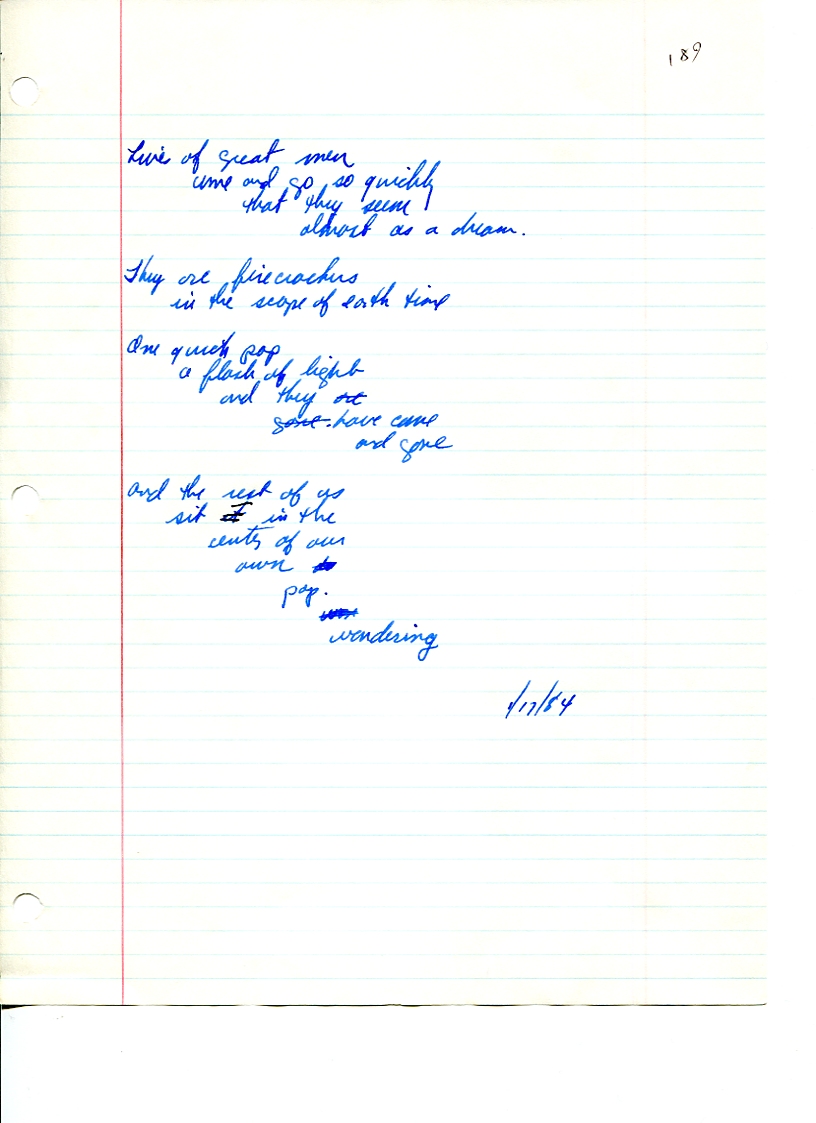 189
Lives of great men
come and go so quickly
that they seem
almost as a dream.
They are firecrackers
in the scope of earth time
One quick pop
a flash of light
and they are
gone. have come
and gone
and the rest of us
sit in the
center of our
own
pop.
wondering
1/17/84